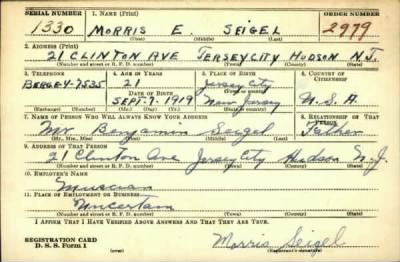 SERIAL NUMBER 1. NAME (Print) ORDER NUMBER
1330 MORRIS E. SEIGEL 2979
(First) (Middle) (Last)
2. ADDRESS (Print)
21 CLINTON AVE JERSEY CITY HUDSON N.J.
(Number and street or R. F. D. number) (Town) (County) (State)
3. TELEPHONE 4. AGE IN YEARS 5. PLACE OF BIRTH 6. COUNTRY OF CITIZENSHIP
21 Jersey City
BERGE4-7535 DATE OF BIRTH (Town or county)
SEPT. 7. 1919 New Jersey U.S.A.
(Exchange) (Number) (Mo.) (Day) (Yr.) (State or country)
7. NAME OF PERSON WHO WILL ALWAYS KNOW YOUR ADDRESS 8. RELATIONSHIP OF THAT PERSON
Mr. Benjamin Seigel Father
(Mr., Mrs., Miss) (First) (Middle) (Last)
9. ADDRESS OF THAT PERSON
21 Clinton Ave Jersey City Hudson N.J.
(Number and street or R. F. D. number) (Town) (County) (State)
10. EMPLOYER'S NAME
Musician
11. PLACE OF EMPLOYMENT OR BUSINESS
Uncertain
(Number and street or R. F. D. number) (Town) (County) (State)
I AFFIRM THAT I HAVE VERIFIED ABOVE ANSWERS AND THAT THEY ARE TRUE.
REGISTRATION CARD
D. S. S. Form 1 (over) Morris Seigel